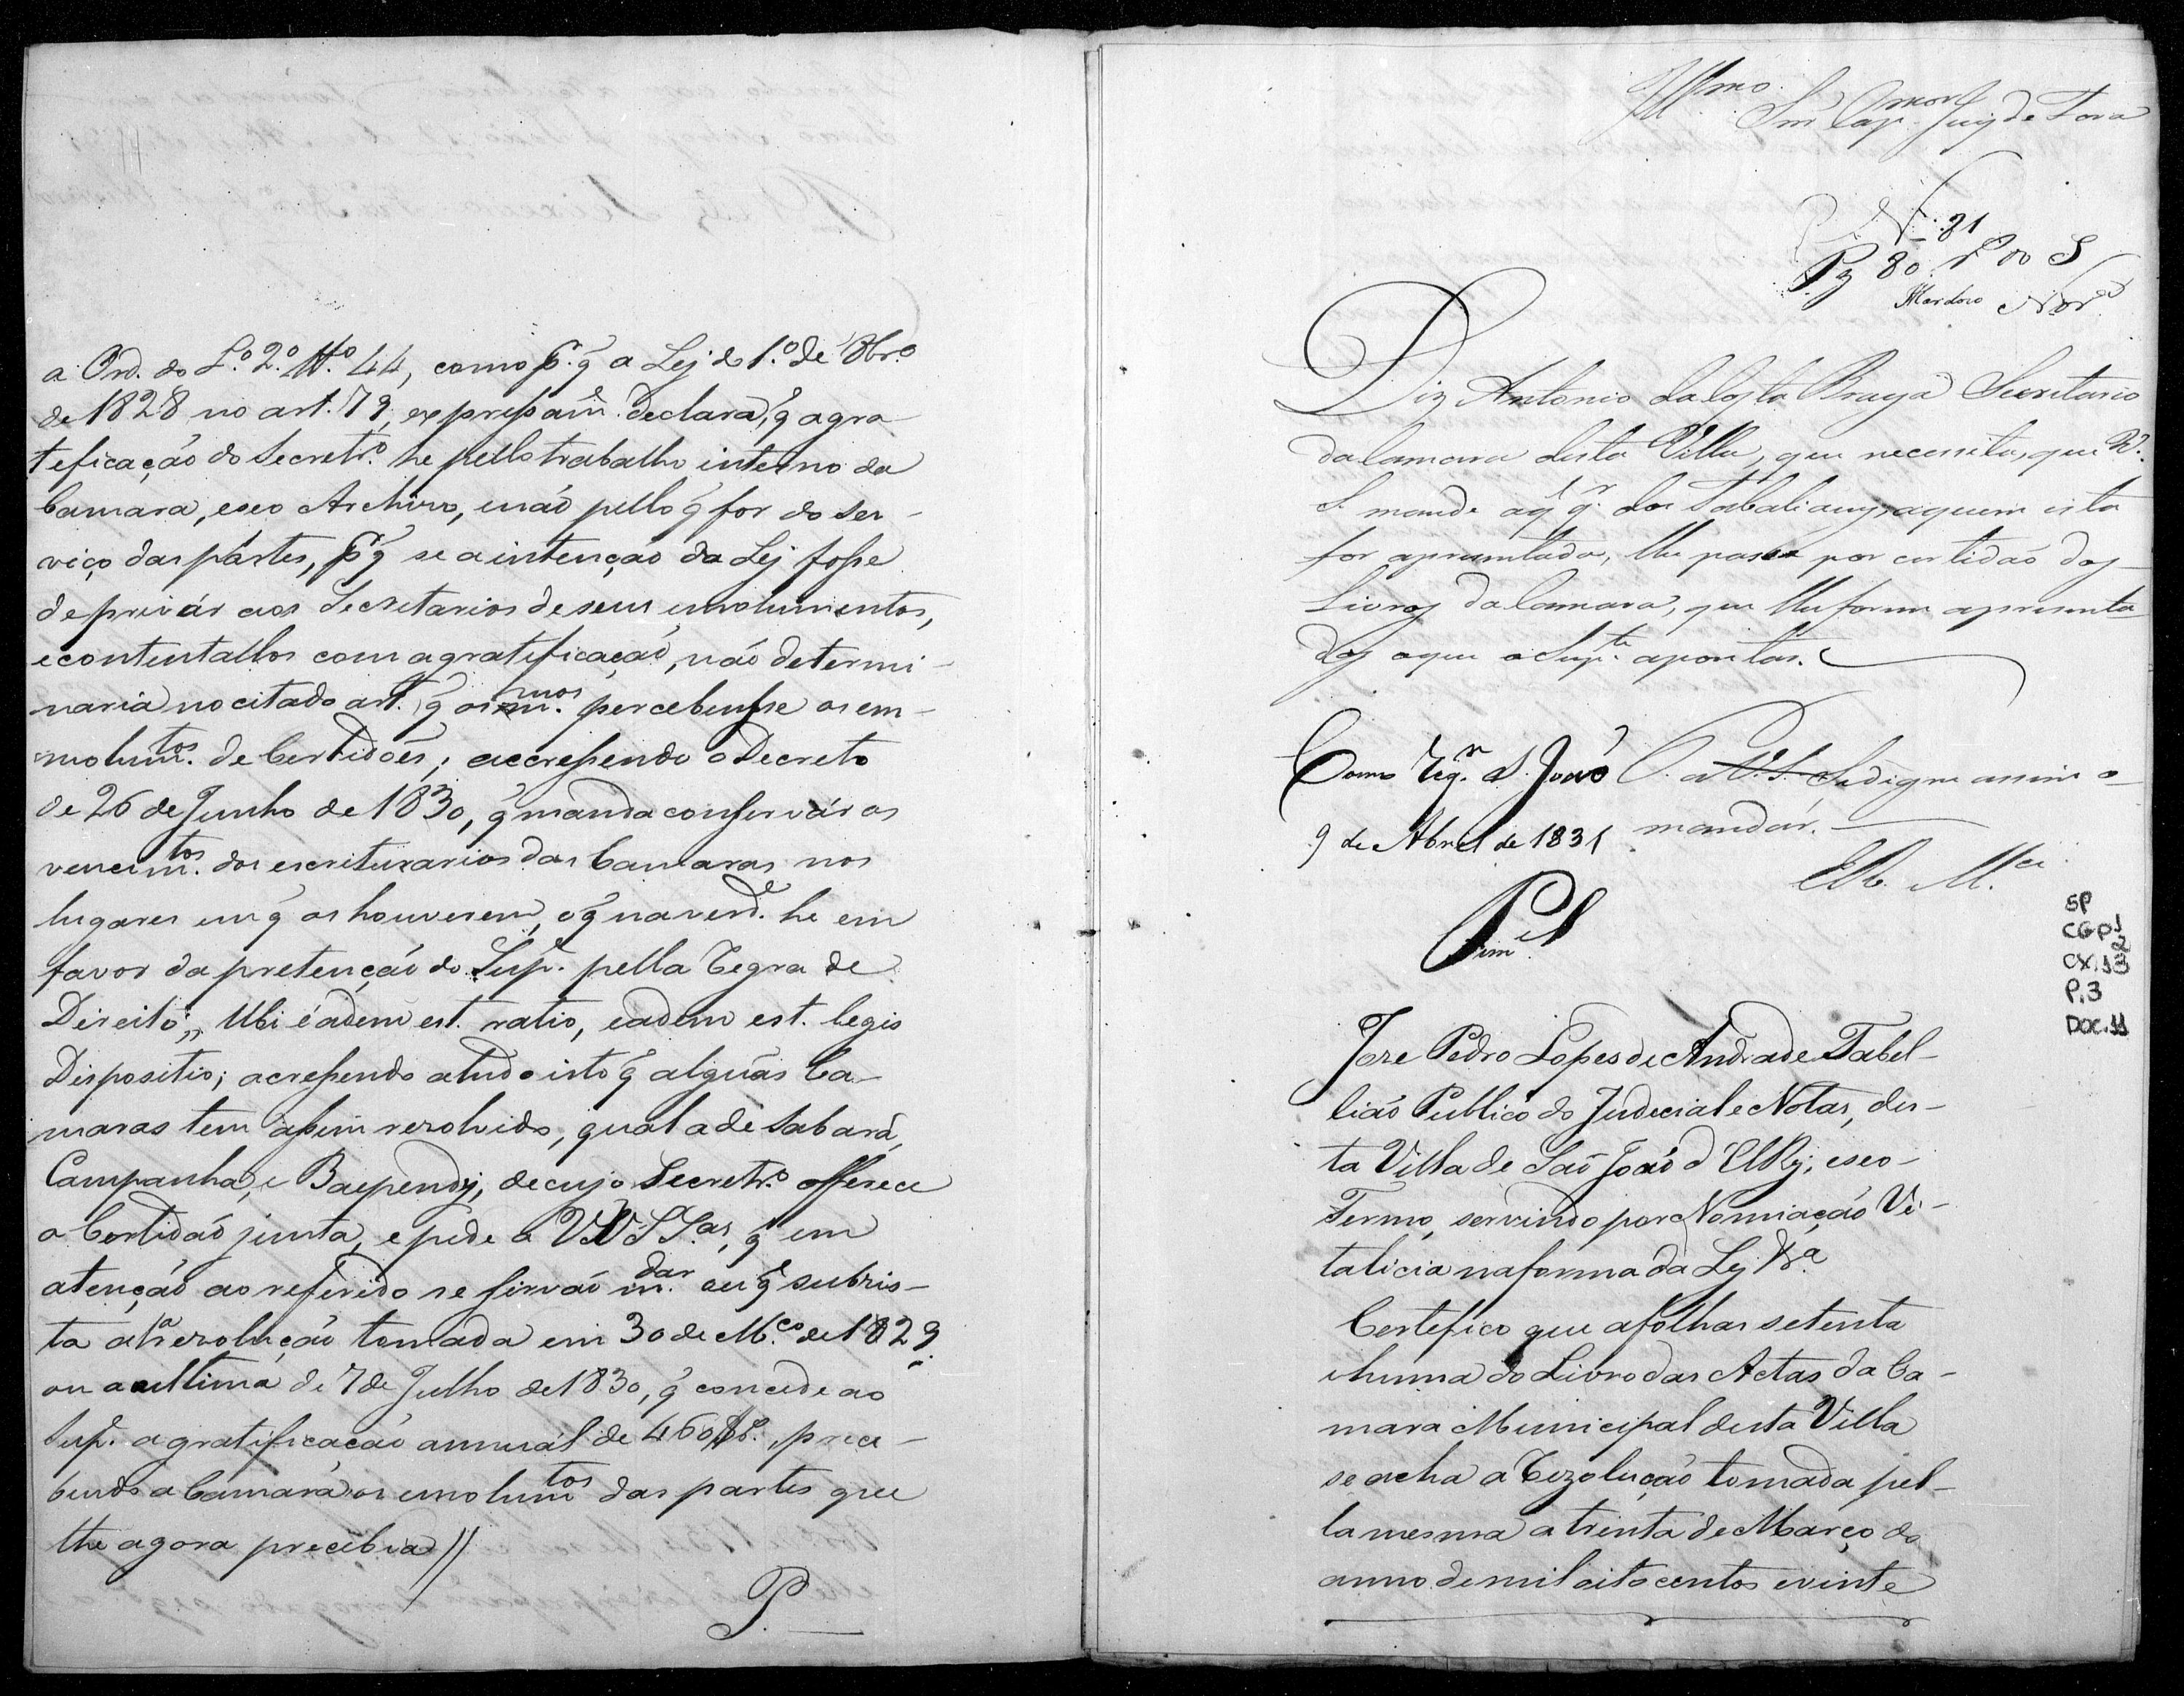 a Ord. do L.º 2.º tt.º 44, como p.r q̃ a Lej do 1.º de 8br.º
de 1828 no art. 79, expressam.e declara, q̃ a gra-
teficação do Secretr.º he pello trabalho interno da
Camara, e seo Archivo, e não pello q̃ for do ser-
viço das pártes, p.r q̃ se a intenção da Lej fosse
de privár aos Secretarios de seus emolumentos,
e contentallos com a gratificação, não determi-
naria no citado art. q̃ os m.mos percebessem os em-
molum.tos de Certidões; accressendo o Decreto
de 26 de Junho de 1830, q̃ manda conservár os
vencim.tos dos escriturarios das Camaras nos
lugares em q̃ os houverem, o q̃ na verd.e he em
favor da pretenção do Sup.e pella Regra de
Direito,, Ubi éadem est. ratio, eadem est. legis
Dispositio; acressendo a tudo isto q̃ alguãs Ca-
maras tem assim rezolvido, qual a de Sabará,
Campanha, e Baependÿ, de cujo Secretr.º offerece
a Certidão junta, e pede a VV SS.as, q̃ em
atenção ao referido se sirvão m.dar ou q̃ subzis-
ta a Rezolução tomada em 30 de M.ço de 1829
ou a ultima de 7 de Julho de 1830, q̃ concede ao
Sup.e a gratificação annuál de 460$ r.s, prece-
bendo a Camara os emolum.tos das partes que
the agora precebia //
P.
Ill.mo Snr Cap.mor Juiz de Fora
N. 81
Pg 80 r
Diz Antonio da Costa Braga Secretario
da Camara desta Villa, que necessita, que V.
S. mande a q.l q.r dos Tabaliaens, a quem esta
for aprezentada, lhe passe por certidaõ dos
Livros da Camara, que lhe forem aprezenta-
dos o que o Sup.te apontar.
P. a V. S. Se digne assim o
mandár.
E R. M.ce
Como req.r S. João
9 de Abril de 1831
Pim.el
SP
CGP1
2
CX.13
P.3
DOC.11
Jose Pedro Lopes de Andrade Tabel-
lião Publico do Judicial e Notas, des-
ta Villa de São João d'ElRej, e seo
Termo, servindo por Nomiação Vi-
talicia na forma da Lej &.ª
Certefico que a folhas setenta
e huma do Livro das Actas da Ca-
mara Municipal desta Villa
se acha a Rezolução tomada pel-
la mesma a trinta de Março do
anno de mil oito centos e vinte